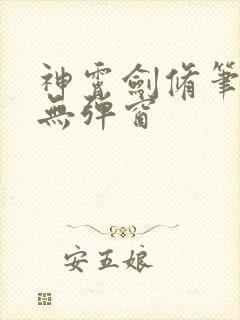 神霄劍脩筆
無彈窗
安五娘